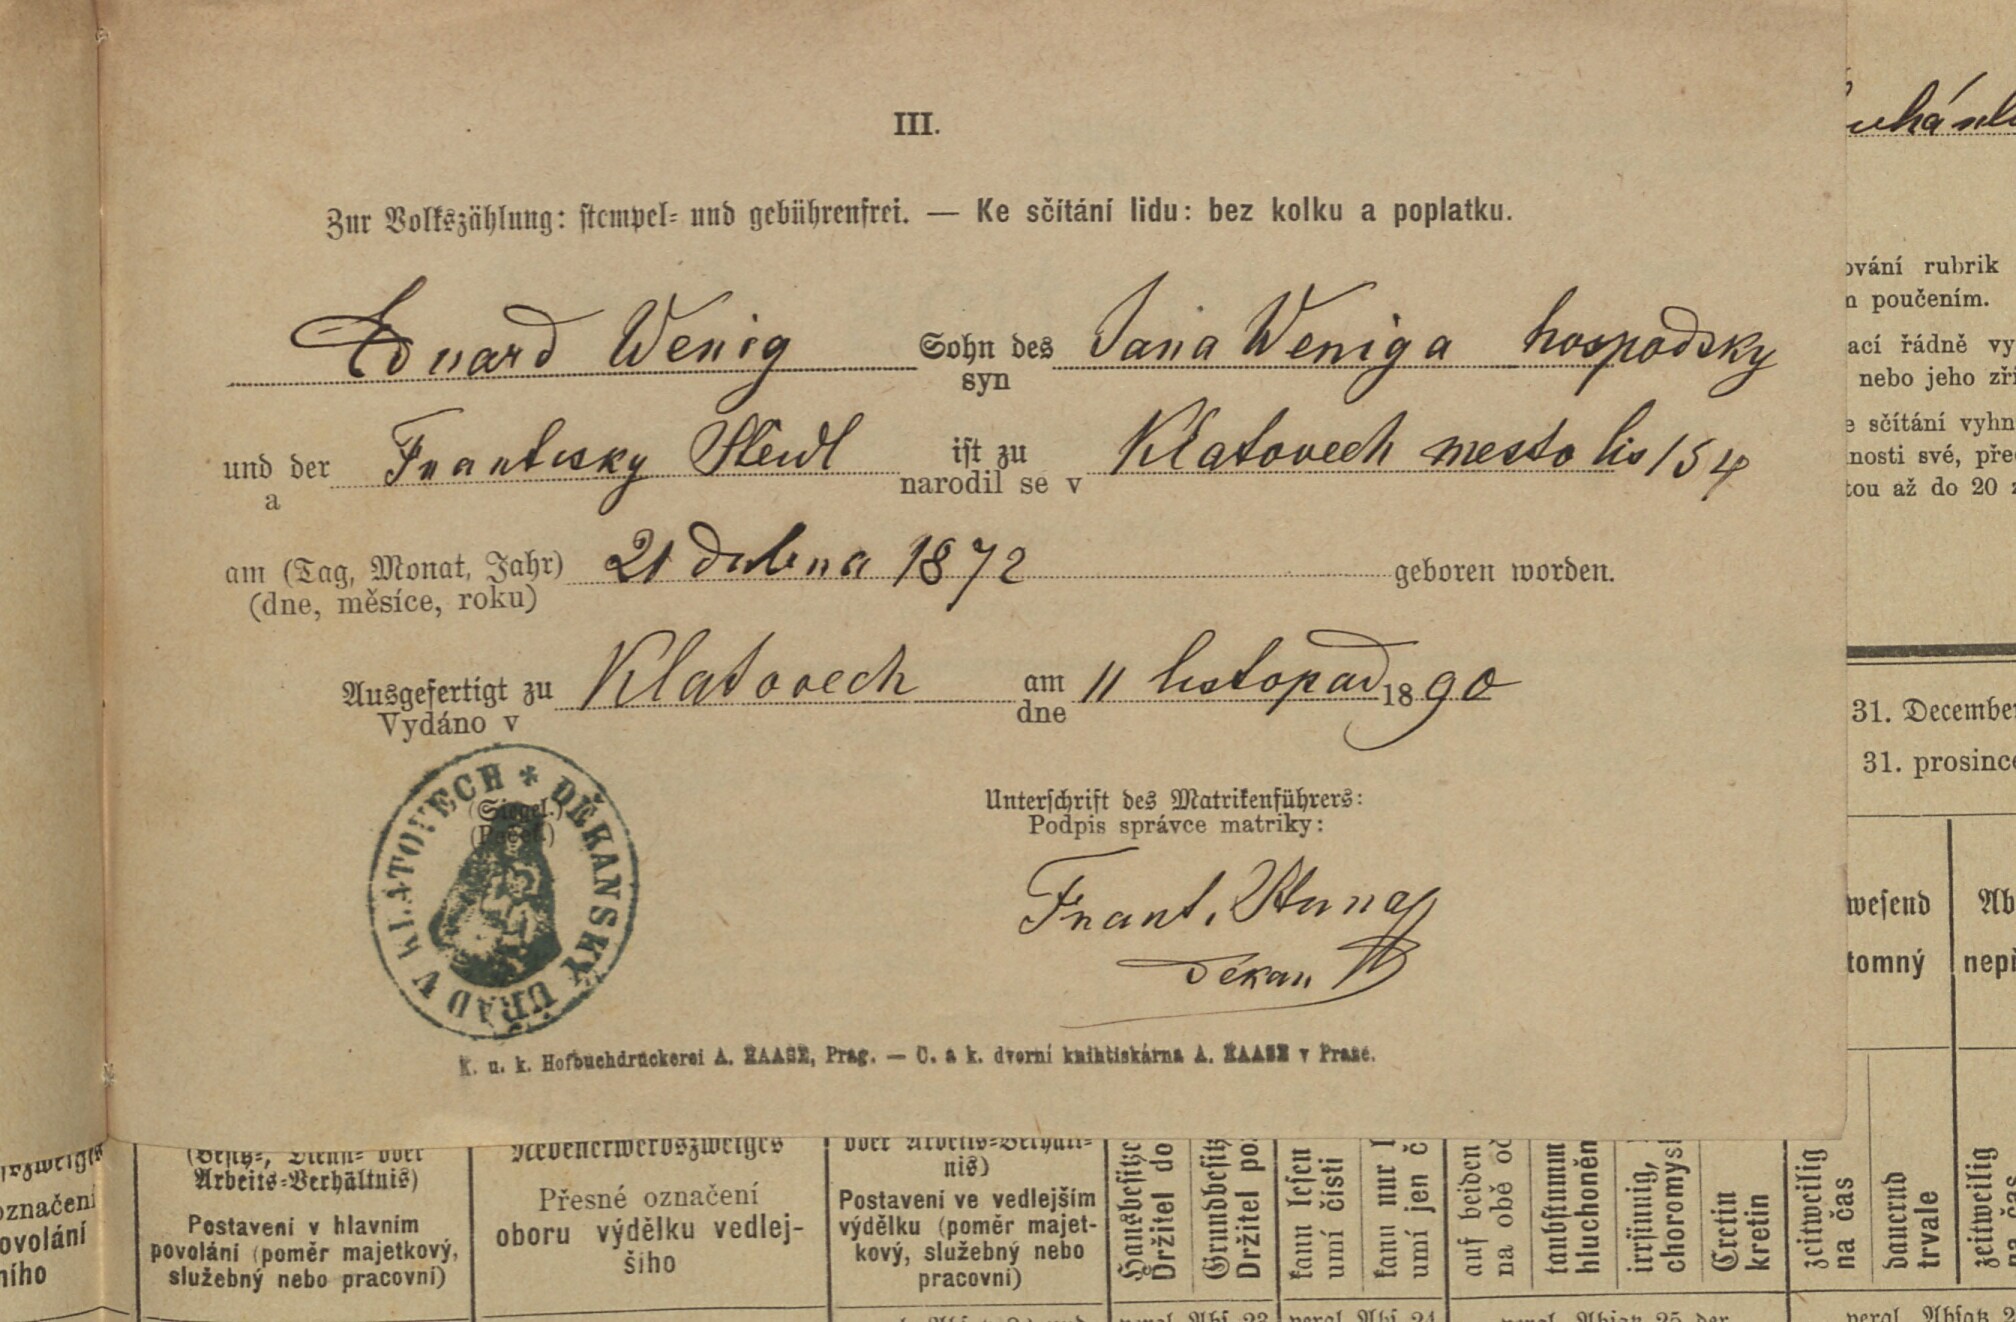 III.
Zur Volkszählung: stempel- und gebührenfrei. — Ke sčítání lidu: bez kolku a poplatku.
Eduard Wenig Sohn des Jana Weniga hospodsky
syn
und der Frantisky Steidl ist zu Klatovech mesto čis 154
a narodil se v
am (Tag, Monat, Jahr) 21 dubna 1872 geboren worden.
(dne, měsíce, roku)
Ausgefertigt zu Klatovech am 11 listopad 1890
Vydáno v dne
(Siegel.)
(Pečeť.)
DĚKANSKÝ ÚŘAD V KLATOVECH *
Unterschrift des Matrikenführers:
Podpis správce matriky:
Frant.
Děkan
K. u. k. Hofbuchdruckerei A. HAASE, Prag. — C. a k. dvorní knihtiskárna A. HAASE v Praze.
ování rubrik
m poučením.
ací řádně vy
nebo jeho zří
e sčítání vyhn
nosti své, pře
tou až do 20 z
31. December
31. prosince
wesend Ab
tomný nepř
označení
ovolání
ního
(Besitz-, Dienst- oder
Arbeits-Verhältnis)
Postavení v hlavním
povolání (poměr majetkový,
služebný nebo pracovní)
Nebenerwerbszweiges
Přesné označení
oboru výdělku vedlej-
šího
oder Arbeits-Verhält-
nis)
Postavení ve vedlejším
výdělku (poměr majet-
kový, služebný nebo
pracovní)
Hausbesitze
Držitel do
Grundbesitz
Držitel po
kann lesen
umí čísti
kann nur l
umí jen č
auf beiden
na obě oč
taubstumm
hluchoněm
irrsinnig,
choromysl
Cretin
kretin
zeitweilig
na čas
dauernd
trvale
zeitweilig
na čas